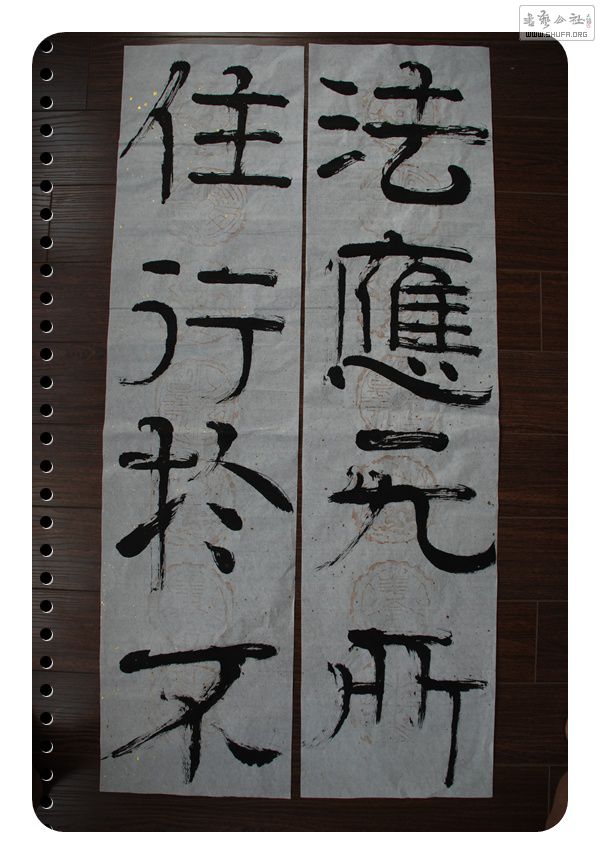 法應无所
住行於不
書藝公社
WWW.SHUFA.ORG